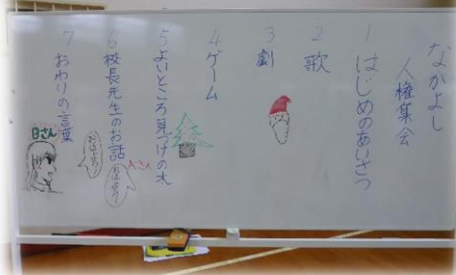 なかよし
人権集会
1 はじめのあいさつ
2 歌
3 劇
4 ゲーム
5 よいところ見つけの木
6 校長先生のお話
7 おわりの言葉
Bさん